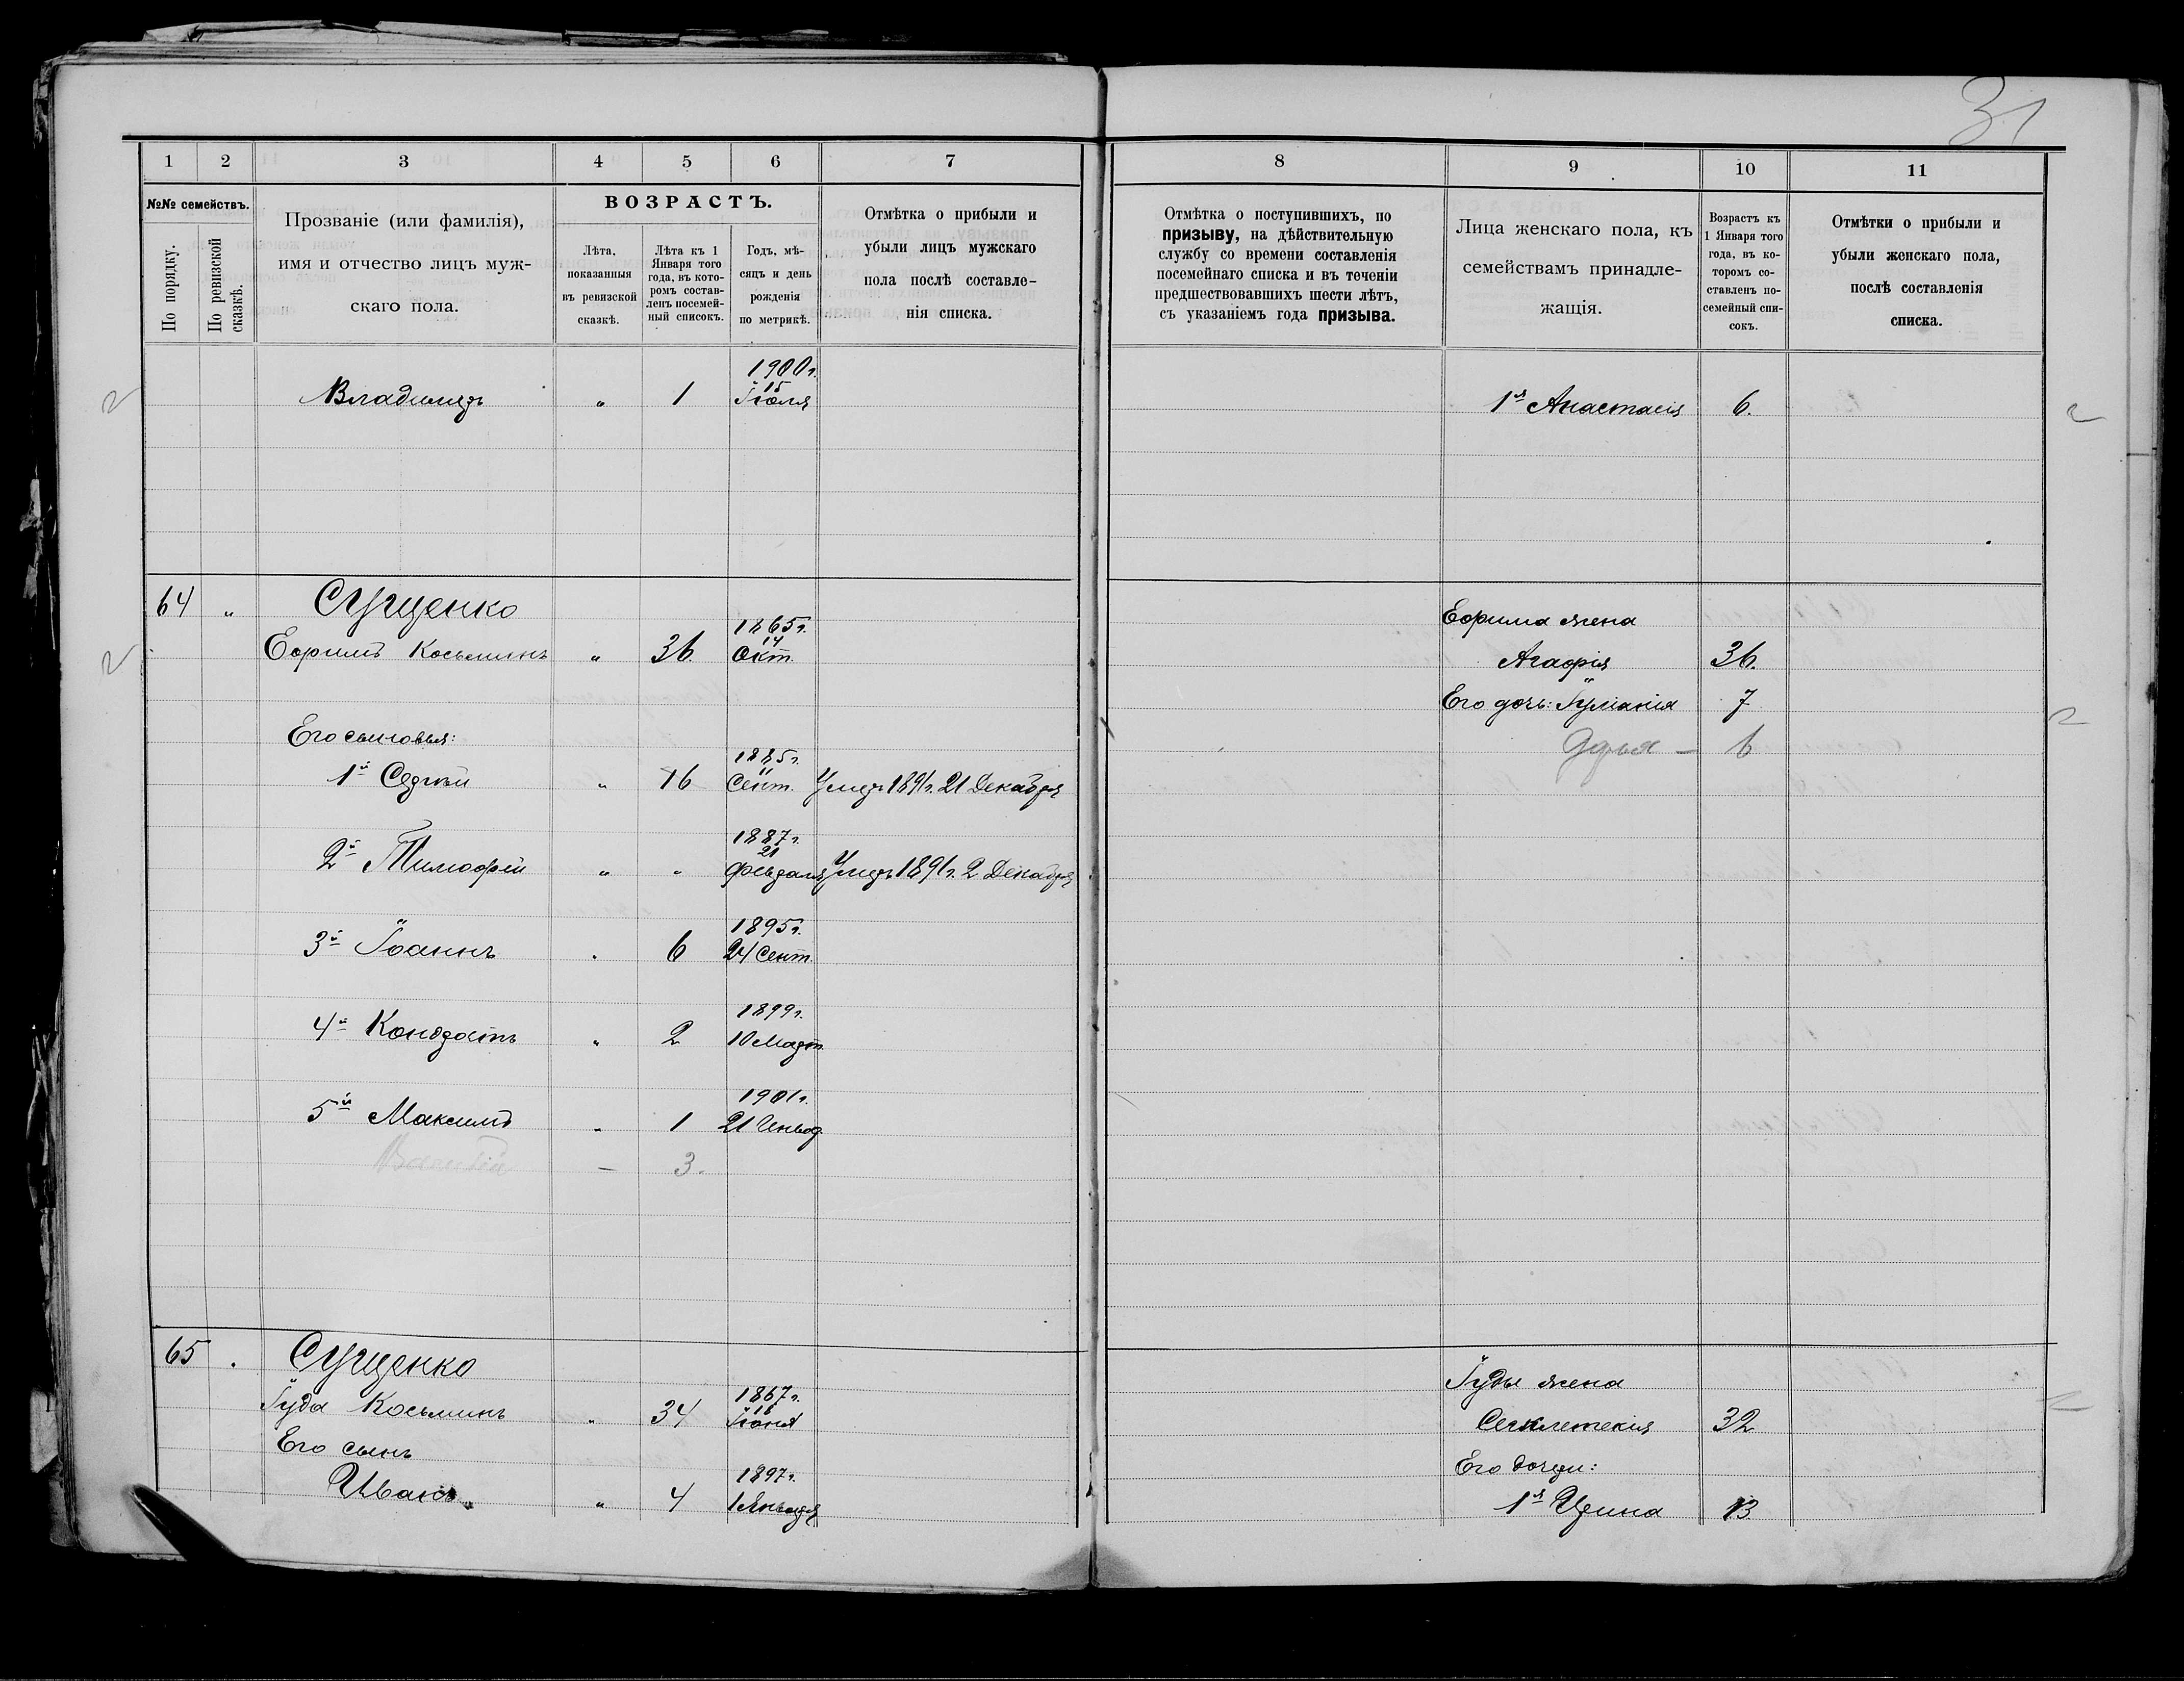 31
1 2 3 4 5 6 7
№№ семействъ.
По порядку.
По ревизской сказкѣ.
Прозваніе (или фамилія),
имя и отчество лицъ муж-
скаго пола.
ВОЗРАСТЪ.
Лѣта,
показанныя
въ ревизской
сказкѣ.
Лѣта къ 1
Января того
года, въ кото-
ромъ состав-
ленъ посемей-
ный списокъ.
Годъ, мѣ-
сяцъ и день
рожденія
по метрикѣ.
Отмѣтка о прибыли и
убыли лицъ мужскаго
пола послѣ составле-
нія списка.
1900 г.
15
Владимиръ " 1 Іюля
64 " Сущенко
1865 г.
14
Ефримъ Косьминъ " 36. Окт.
Его сыновья:
1885 г.
11
1й Сергѣй " 16 Сент. Умеръ 1891 г. 21 Декабря
1887 г.
21
2й Тимофей " " Февраля Умеръ 1891 г. 2 Декабря
1895 г.
3й Іоаннъ " 6 24 Сент.
1899 г.
4й Кондратъ " 2 10 Март.
1901 г.
5й Максимъ " 1 21 Январ.
Василій — 3.
65 . Сущенко
1867 г.
18
Іуда Косьминъ " 34 Іюня
Его сынъ
1897 г.
Иванъ " 4 1 Января
8 9 10 11
Отмѣтка о поступившихъ, по
призыву, на дѣйствительную
службу со времени составленія
посемейнаго списка и въ теченіи
предшествовавшихъ шести лѣтъ,
съ указаніемъ года призыва.
Лица женскаго пола, къ
семействамъ принадле-
жащія.
Возрастъ къ
1 Января того
года, въ ко-
торомъ со-
ставленъ по-
семейный спи-
сокъ.
Отмѣтки о прибыли и
убыли женскаго пола,
послѣ составленія
списка.
1я Анастасія 6.
Ефрима жена
Агафія 36.
Его дочь: Іуліанія 7
— 6
Іуды жена
Секлетекія 32
Его дочери:
1я Ирина 13.